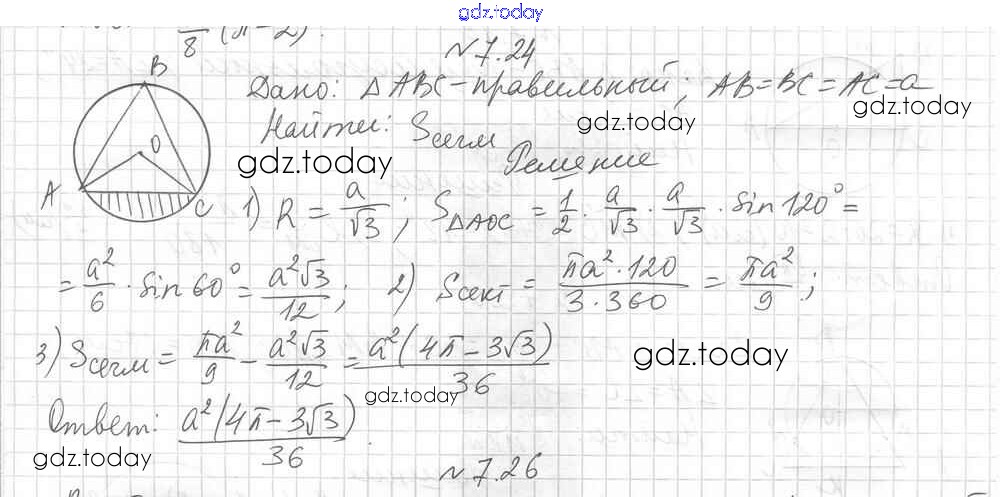 gdz.today
/8 (π-2).
№7.24
B
O
A
C
Дано: △ABC - правильный; AB=BC=AC=a
gdz.today
Найти: Sсегм
gdz.today
Решение
1) R = a/√3; S△AOC = 1/2 · a/√3 · a/√3 · sin120° =
= a²/6 · sin60° = a²√3/12; 2) Sсект = πa²·120/3·360 = πa²/9;
3) Sсегм = πa²/9 - a²√3/12 = a²(4π-3√3)/36
gdz.today
gdz.today
Ответ: a²(4π-3√3)/36.
gdz.today
№7.26